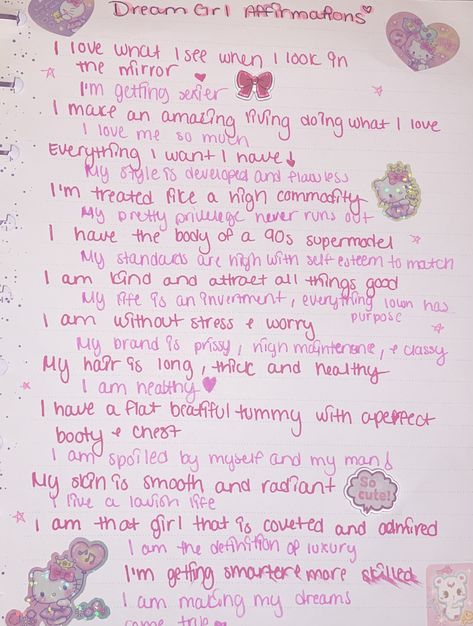 Dream Girl Affirmations
I love what I see when I look in
the mirror
I'm getting sexier
I make an amazing living doing what I love
I love me so much
Everything I want I have
My style is developed and flawless
I'm treated like a high commodity
My pretty privilege never runs out
I have the body of a 90s supermodel
My standards are high with self esteem to match
I am kind and attract all things good
My life is an inverment, everything I own has
purpose
I am without stress & worry
My brand is prissy, high maintenene, & classy
My hair is long, thick and healthy
I am healthy
I have a flat beatiful tummy with a perfect
booty & chest
I am spoiled by myself and my man
My skin is smooth and radiant
So cute!
I live a lavish life
I am that girl that is coveted and admired
I am the definition of luxury
I'm getting smarter & more skilled
I am making my dreams
come true